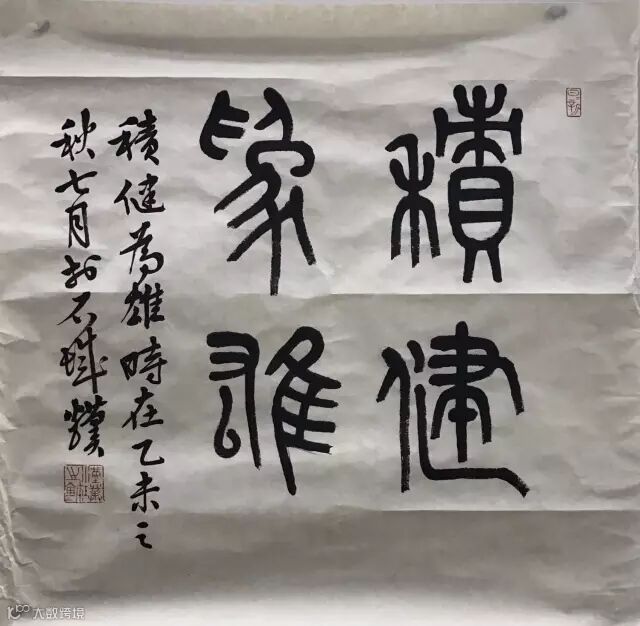 積健
為雄
積健為雄時在乙未之
秋七月於石城
大数跨境